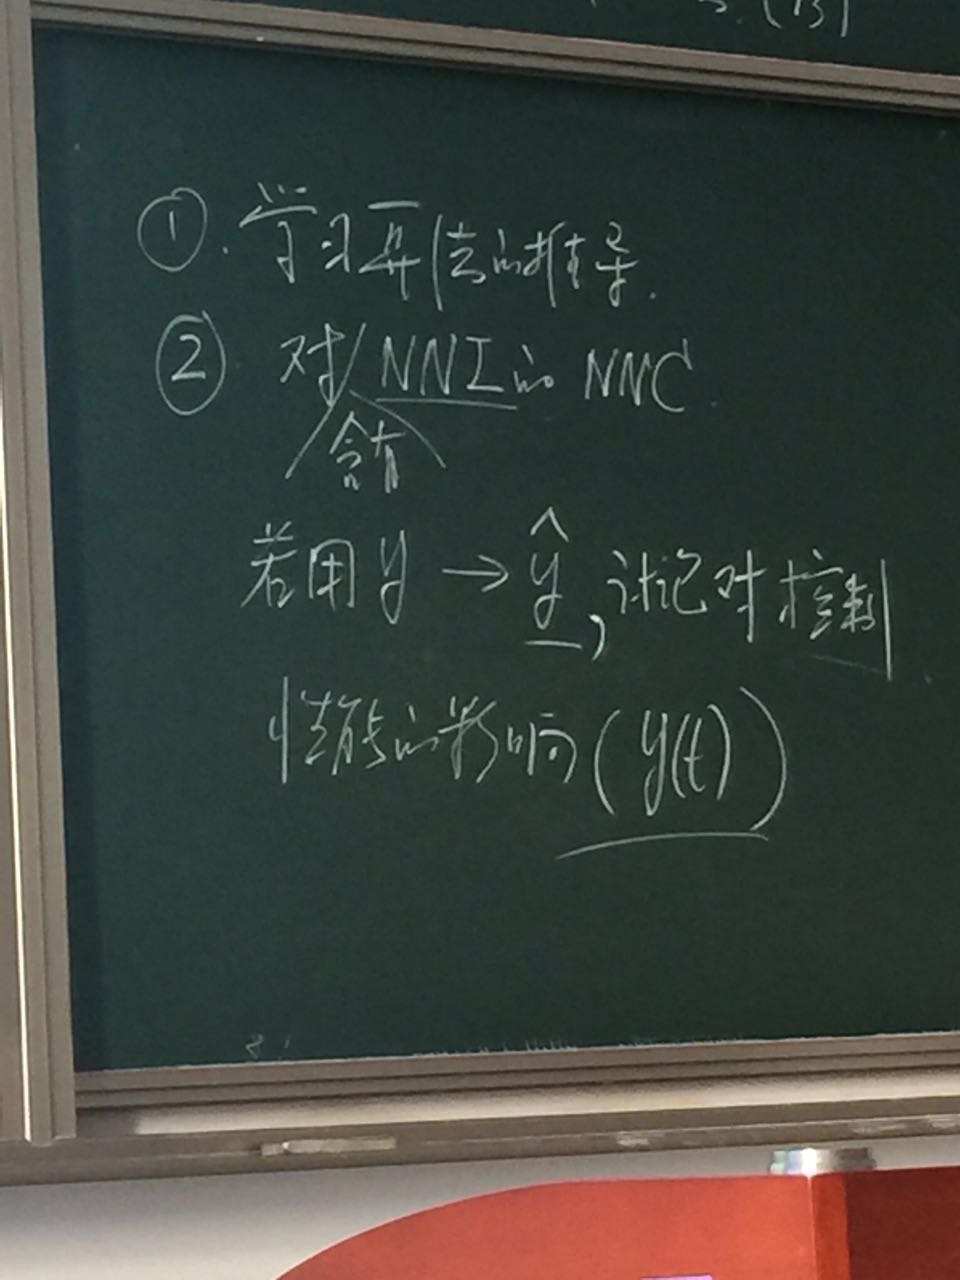 ①. 学习算法的推导.
② 对含有NNI的NNC.
若用y→ŷ, 讨论对控制
性能的影响(y(t))